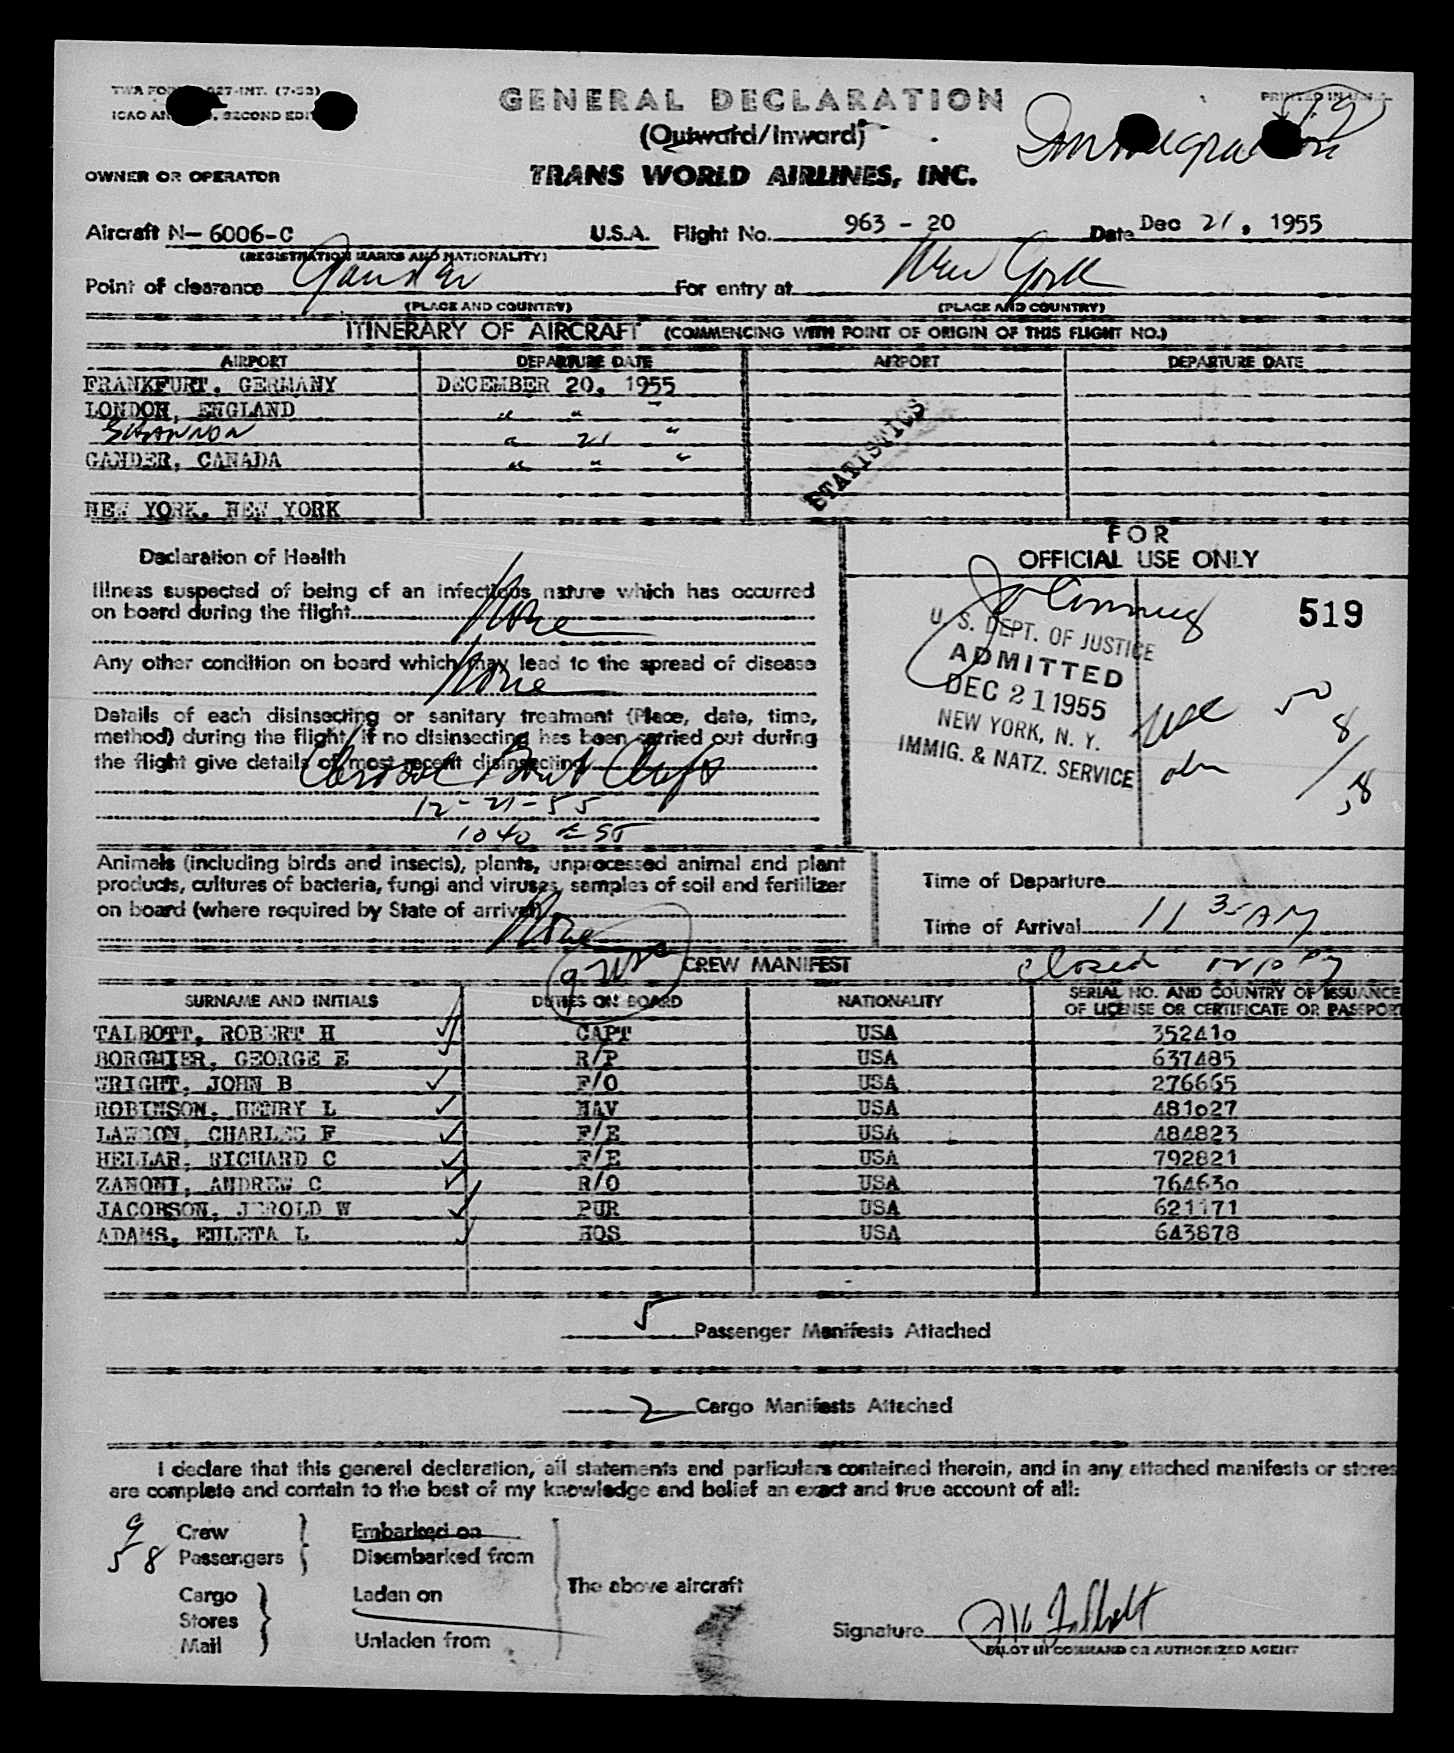 GENERAL DECLARATION
PRINTED IN U.S.A.
(Outward/Inward)
Immigration
OWNER OR OPERATOR
TRANS WORLD AIRLINES, INC.
Aircraft N- 6006-C U.S.A. Flight No. 963 - 20 Date Dec 21, 1955
(REGISTRATION MARKS AND NATIONALITY)
Point of clearance Gander For entry at New York
(PLACE AND COUNTRY) (PLACE AND COUNTRY)
ITINERARY OF AIRCRAFT (COMMENCING WITH POINT OF ORIGIN OF THIS FLIGHT NO.)
AIRPORT DEPARTURE DATE AIRPORT DEPARTURE DATE
FRANKFURT, GERMANY DECEMBER 20, 1955
LONDON, ENGLAND " " "
SHANNON " 21 "
GANDER, CANADA " " "
STATISTICS
NEW YORK, NEW YORK
FOR
OFFICIAL USE ONLY
Declaration of Health
Illness suspected of being of an infectious nature which has occurred
on board during the flight None
519
Any other condition on board which may lead to the spread of disease
None
U. S. DEPT. OF JUSTICE
ADMITTED
DEC 21 1955
NEW YORK, N. Y.
IMMIG. & NATZ. SERVICE
50
8
58
Details of each disinsecting or sanitary treatment (Place, date, time,
method) during the flight. If no disinsecting has been carried out during
the flight give details of most recent disinsecting
12-21-55
1040 EST
Animals (including birds and insects), plants, unprocessed animal and plant
products, cultures of bacteria, fungi and viruses, samples of soil and fertilizer
on board (where required by State of arrival)
None
Time of Departure
Time of Arrival 11 35 AM
closed
CREW MANIFEST
SURNAME AND INITIALS DUTIES ON BOARD NATIONALITY SERIAL NO. AND COUNTRY OF ISSUANCE
OF LICENSE OR CERTIFICATE OR PASSPORT
TALBOTT, ROBERT H CAPT USA 352410
BORGMIER, GEORGE E R/P USA 637485
WRIGHT, JOHN B F/O USA 276665
ROBINSON, HENRY L NAV USA 481027
LAWSON, CHARLES F F/E USA 484823
HELLAR, RICHARD C F/E USA 792821
ZANONI, ANDREW C R/O USA 764630
JACOBSON, JEROLD W PUR USA 621171
ADAMS, EULETA L HOS USA 643878
5 Passenger Manifests Attached
2 Cargo Manifests Attached
I declare that this general declaration, all statements and particulars contained therein, and in any attached manifests or stores
are complete and contain to the best of my knowledge and belief an exact and true account of all:
9 Crew Embarked on
58 Passengers Disembarked from
The above aircraft
Cargo Laden on
Stores
Mail Unladen from
Signature R H Talbott
PILOT IN COMMAND OR AUTHORIZED AGENT